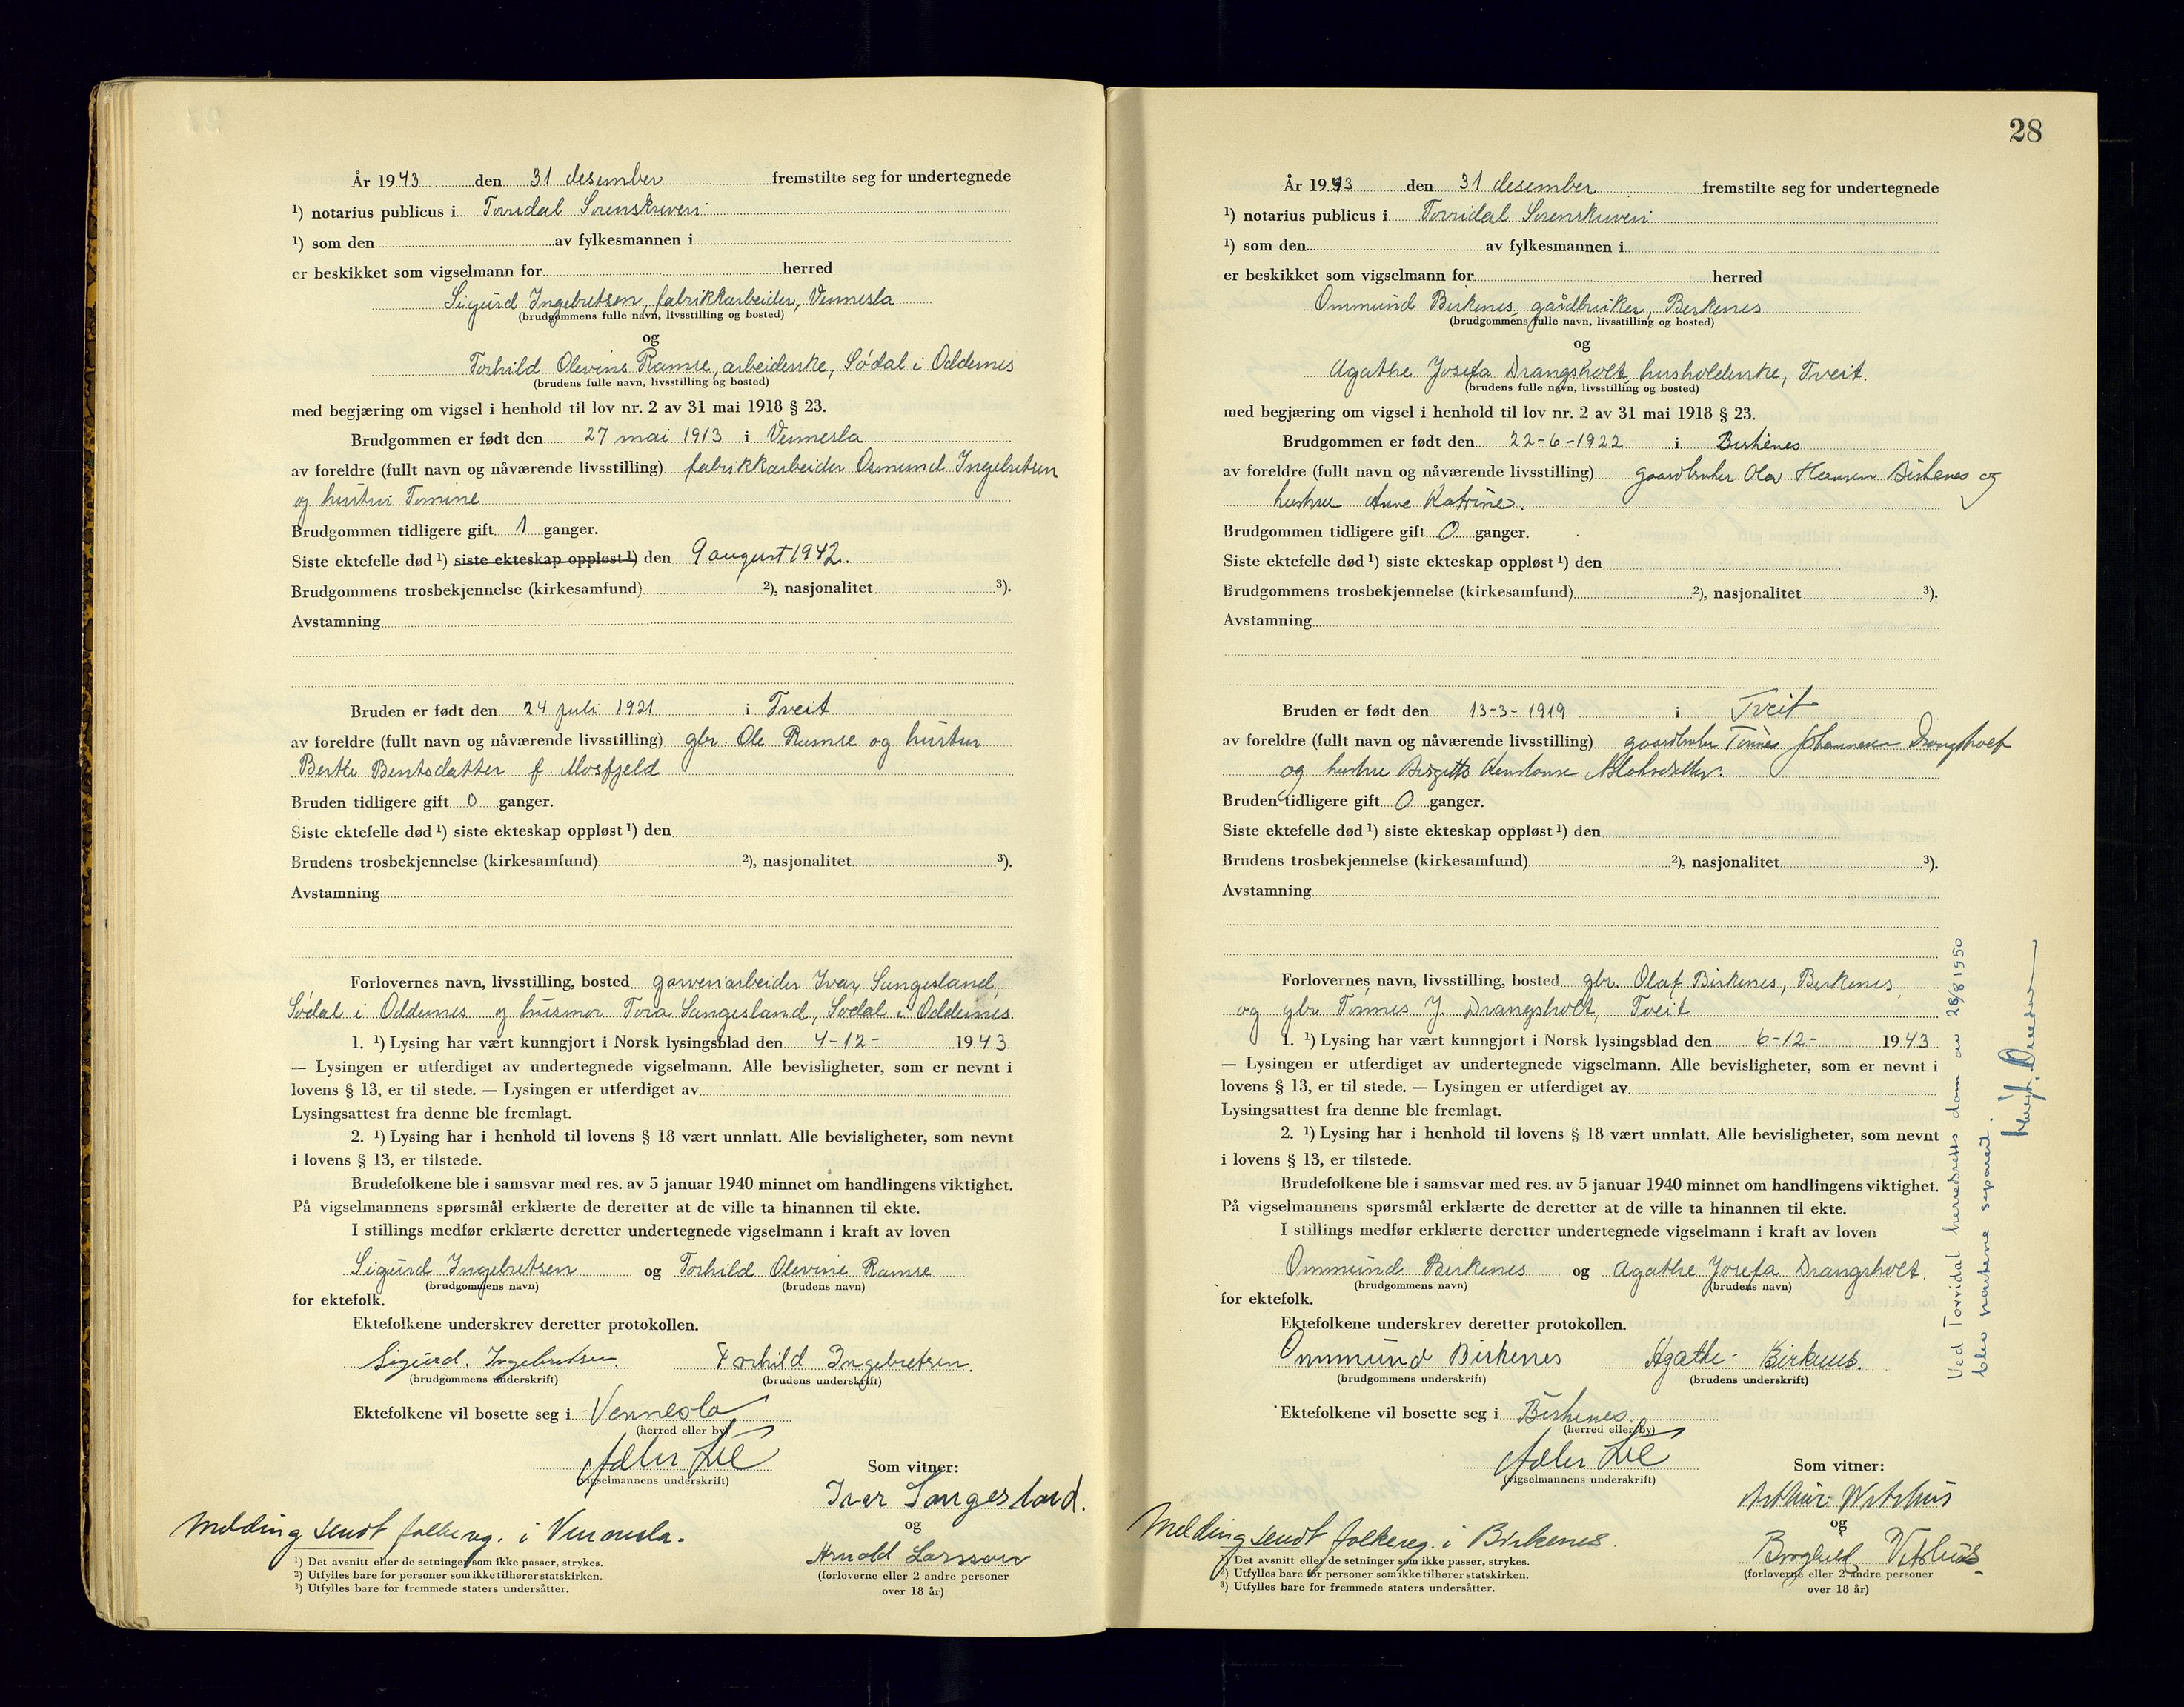 År 1943 den 31 desember fremstilte seg for undertegnede
¹) notarius publicus i Torridal Sorenskriveri
¹) som den av fylkesmannen i
er beskikket som vigselmann for herred
Sigurd Ingebretsen, fabrikkarbeider, Vennesla
(brudgommens fulle navn, livsstilling og bosted)
og
Torhild Olevine Ramse, arbeiderske, Sødal i Oddernes
(brudens fulle navn, livsstilling og bosted)
med begjæring om vigsel i henhold til lov nr. 2 av 31 mai 1918 § 23.
Brudgommen er født den 27 mai 1913 i Vennesla
av foreldre (fullt navn og nåværende livsstilling) fabrikkarbeider Osmund Ingebretsen
og hustru Tomine
Brudgommen tidligere gift 1 ganger.
Siste ektefelle død ¹) siste ekteskap oppløst ¹) den 9 august 1942.
Brudgommens trosbekjennelse (kirkesamfund) ²), nasjonalitet ³).
Avstamning
Bruden er født den 24 juli 1921 i Tveit
av foreldre (fullt navn og nåværende livsstilling) gbr. Ole Ramse og hustru
Berte Bentsdatter f. Mosfjeld
Bruden tidligere gift 0 ganger.
Siste ektefelle død ¹) siste ekteskap oppløst ¹) den
Brudens trosbekjennelse (kirkesamfund) ²), nasjonalitet ³).
Avstamning
Forlovernes navn, livsstilling, bosted garveriarbeider Ivar Sangesland,
Sødal i Oddernes og husmor Tora Sangesland, Sødal i Oddernes.
1. ¹) Lysing har vært kunngjort i Norsk lysingsblad den 4-12- 1943
— Lysingen er utferdiget av undertegnede vigselmann. Alle bevisligheter, som er nevnt i
lovens § 13, er til stede. — Lysingen er utferdiget av
Lysingsattest fra denne ble fremlagt.
2. ¹) Lysing har i henhold til lovens § 18 vært unnlatt. Alle bevisligheter, som nevnt
i lovens § 13, er tilstede.
Brudefolkene ble i samsvar med res. av 5 januar 1940 minnet om handlingens viktighet.
På vigselmannens spørsmål erklærte de deretter at de ville ta hinannen til ekte.
I stillings medfør erklærte deretter undertegnede vigselmann i kraft av loven
Sigurd Ingebretsen og Torhild Olevine Ramse
(brudgommens navn) (brudens navn)
for ektefolk.
Ektefolkene underskrev deretter protokollen.
Sigurd. Ingebretsen. Torhild Ingebretsen.
(brudgommens underskrift) (brudens underskrift)
Ektefolkene vil bosette seg i Vennesla
(herred eller by)
Adler Lie
(vigselmannens underskrift)
Som vitner:
Ivar Sangesland.
og
Arnold Larsson
(forloverne eller 2 andre personer
over 18 år)
Melding sendt folkereg. i Vennesla.
¹) Det avsnitt eller de setninger som ikke passer, strykes.
²) Utfylles bare for personer som ikke tilhører statskirken.
³) Utfylles bare for fremmede staters undersåtter.
28
År 1943 den 31 desember fremstilte seg for undertegnede
¹) notarius publicus i Torridal Sorenskriveri
¹) som den av fylkesmannen i
er beskikket som vigselmann for herred
Ommund Birkenes, gårdbruker, Birkenes
(brudgommens fulle navn, livsstilling og bosted)
og
Agathe Josefa Drangsholt, husholderske, Tveit.
(brudens fulle navn, livsstilling og bosted)
med begjæring om vigsel i henhold til lov nr. 2 av 31 mai 1918 § 23.
Brudgommen er født den 22-6-1922 i Birkenes
av foreldre (fullt navn og nåværende livsstilling) gaardbruker Olav Hansen Birkenes og
hustru Anne Katrine.
Brudgommen tidligere gift 0 ganger.
Siste ektefelle død ¹) siste ekteskap oppløst ¹) den
Brudgommens trosbekjennelse (kirkesamfund) ²), nasjonalitet ³).
Avstamning
Bruden er født den 13-3-1919 i Tveit
av foreldre (fullt navn og nåværende livsstilling) gaardbruker Tønnes Johannesen Drangsholt
og hustru Birgitte
Bruden tidligere gift 0 ganger.
Siste ektefelle død ¹) siste ekteskap oppløst ¹) den
Brudens trosbekjennelse (kirkesamfund) ²), nasjonalitet ³).
Avstamning
Forlovernes navn, livsstilling, bosted gbr. Olaf Birkenes, Birkenes,
og gbr Tønnes J. Drangsholt, Tveit
1. ¹) Lysing har vært kunngjort i Norsk lysingsblad den 6-12- 1943
— Lysingen er utferdiget av undertegnede vigselmann. Alle bevisligheter, som er nevnt i
lovens § 13, er til stede. — Lysingen er utferdiget av
Lysingsattest fra denne ble fremlagt.
2. ¹) Lysing har i henhold til lovens § 18 vært unnlatt. Alle bevisligheter, som nevnt
i lovens § 13, er tilstede.
Brudefolkene ble i samsvar med res. av 5 januar 1940 minnet om handlingens viktighet.
På vigselmannens spørsmål erklærte de deretter at de ville ta hinannen til ekte.
I stillings medfør erklærte deretter undertegnede vigselmann i kraft av loven
Ommund Birkenes og Agathe Josefa Drangsholt.
(brudgommens navn) (brudens navn)
for ektefolk.
Ektefolkene underskrev deretter protokollen.
Ommund Birkenes Agathe Birkenes.
(brudgommens underskrift) (brudens underskrift)
Ektefolkene vil bosette seg i Birkenes
(herred eller by)
Adler Lie
(vigselmannens underskrift)
Som vitner:
Arthur Vitshus
og
Borghild Vitshus
(forloverne eller 2 andre personer
over 18 år)
Melding sendt folkereg. i Birkenes.
¹) Det avsnitt eller de setninger som ikke passer, strykes.
²) Utfylles bare for personer som ikke tilhører statskirken.
³) Utfylles bare for fremmede staters undersåtter.
Ved Torridal herredsretts dom av 28/8 1950
blev partene separert.